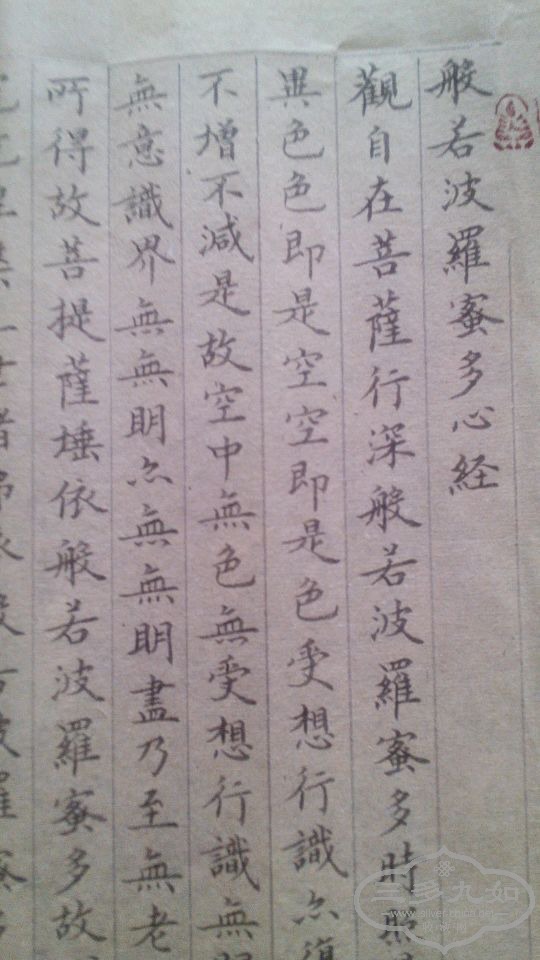 般若波羅蜜多心経
觀自在菩薩行深般若波羅蜜多時照
異色色即是空空即是色受想行識亦復
不增不減是故空中無色無受想行識無
無意識界無無明亦無無明盡乃至無老
所得故菩提薩埵依般若波羅蜜多故
三多九如